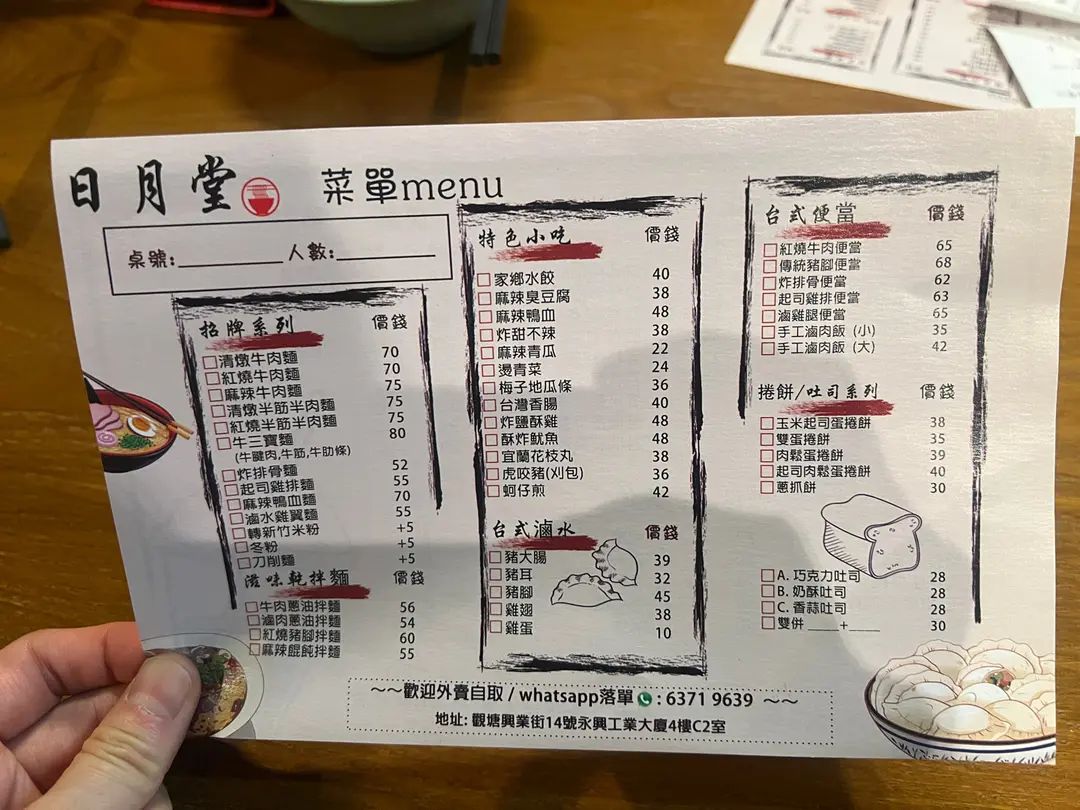 日月堂
菜單menu
桌號:________ 人數:________
招牌系列 價錢
清燉牛肉麵 70
紅燒牛肉麵 70
麻辣牛肉麵 75
清燉半筋半肉麵 75
紅燒半筋半肉麵 75
牛三寶麵 80
(牛腱肉,牛筋,牛肋條)
炸排骨麵 52
起司雞排麵 55
麻辣鴨血麵 70
滷水雞翼麵 55
轉新竹米粉 +5
冬粉 +5
刀削麵 +5
滋味乾拌麵 價錢
牛肉蔥油拌麵 56
滷肉蔥油拌麵 54
紅燒豬腳拌麵 60
麻辣餛飩拌麵 55
特色小吃 價錢
家鄉水餃 40
麻辣臭豆腐 38
麻辣鴨血 48
炸甜不辣 38
麻辣青瓜 22
燙青菜 24
梅子地瓜條 36
台灣香腸 40
炸鹽酥雞 48
酥炸魷魚 48
宜蘭花枝丸 38
虎咬豬(刈包) 36
蚵仔煎 42
台式滷水 價錢
豬大腸 39
豬耳 32
豬腳 45
雞翅 38
雞蛋 10
台式便當 價錢
紅燒牛肉便當 65
傳統豬腳便當 68
炸排骨便當 62
起司雞排便當 63
滷雞腿便當 65
手工滷肉飯 (小) 35
手工滷肉飯 (大) 42
捲餅/吐司系列 價錢
玉米起司蛋捲餅 38
雙蛋捲餅 35
肉鬆蛋捲餅 39
起司肉鬆蛋捲餅 40
蔥抓餅 30
A. 巧克力吐司 28
B. 奶酥吐司 28
C. 香蒜吐司 28
雙併 ____+____ 30
~~歡迎外賣自取 / whatsapp落單 : 6371 9639 ~~
地址: 觀塘興業街14號永興工業大廈4樓C2室